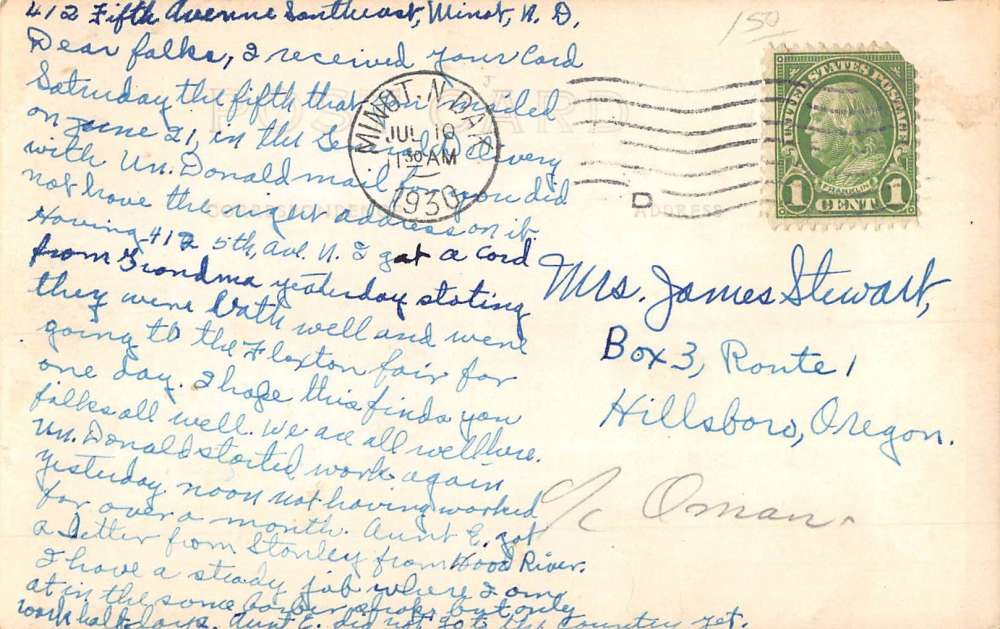 412 Fifth Avenue Southeast, Minot, N. D.
Dear folks, I received your card
Saturday the fifth that you mailed
on June 21, in the General Delivery
with Un. Donald mail for you did
not have the right address on it.
Having 412 5th, Ave. N. I got a card
from Grandma yesterday stating
they were both well and were
going to the Flaxton fair for
one day. I hope this finds you
folks all well. We are all well here.
Un. Donald started work again
yesterday noon not having worked
for over a month. Aunt E. got
a letter from Stanley from Hood River.
I have a steady job where I am
at in the same barber shop but only
work half days. Aunt E. did not go to the country yet.
POST CARD
CORRESPONDENCE
ADDRESS
MINOT, N. DAK.
JUL 10
1 30 AM
1930
D
150
UNITED STATES POSTAGE
FRANKLIN
1 CENT 1
Mrs. James Stewart,
Box 3, Route 1
Hillsboro, Oregon.
c/o Oman.